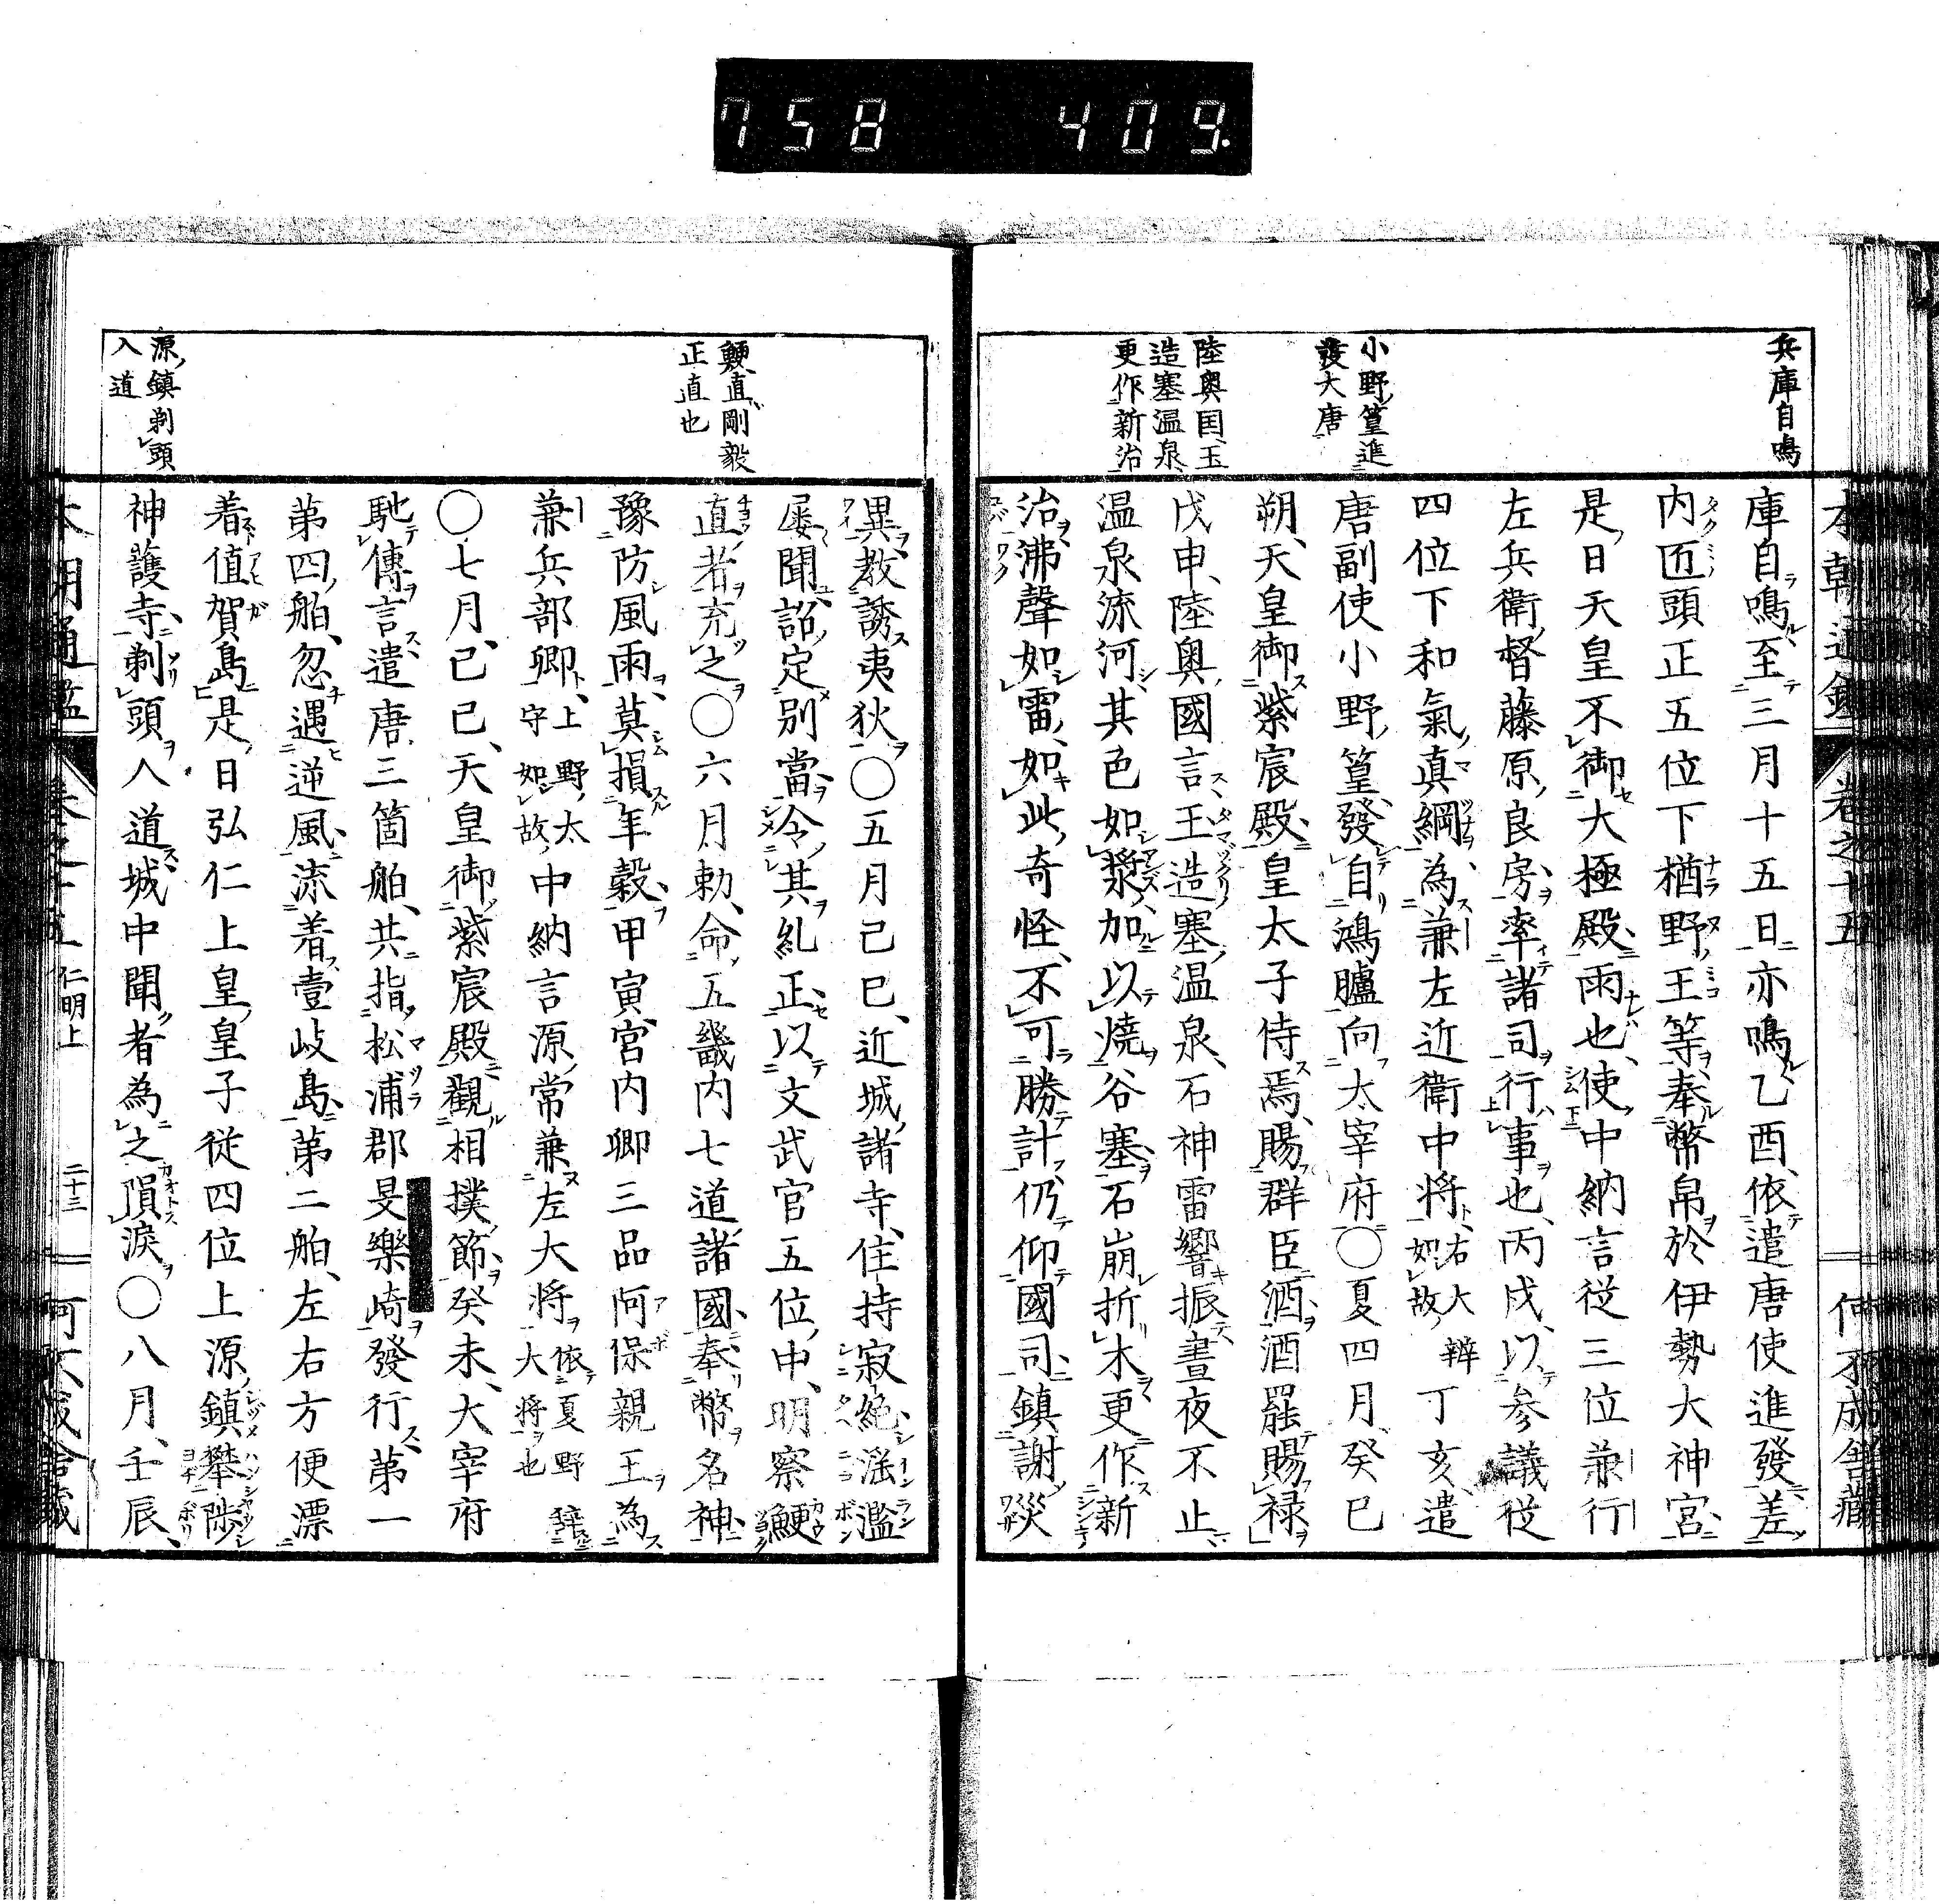 758 409.
兵庫自鳴
小野篁進
護大唐
陸奥国玉
造塞温泉
更作新治
本朝通鑑 卷之十五 何不成舎藏
庫自鳴至三月十五日亦鳴乙酉依遣唐使進發差
内匠頭正五位下楢野王等奉幣帛於伊勢大神宮
是日天皇不御大極殿雨也使中納言従三位兼行
左兵衛督藤原良房率諸司行事也丙戌以参議従
四位下和氣真綱為兼左近衛中将右大辨如故丁亥遣
唐副使小野篁發自鴻臚向太宰府〇夏四月癸巳
朔天皇御紫宸殿皇太子侍焉賜群臣酒酒罷賜禄
戊申陸奥國言王造塞温泉石神雷響振晝夜不止
温泉流河其色如漿加以燒谷塞石崩折木更作新
治沸聲如雷如此奇怪不可勝計仍仰國司鎮謝災
鯁直剛毅
正直也
源鎮剃頭
入道
異教誘夷狄〇五月己巳近城諸寺住持寂絶滛濫
屡聞詔定別當令其糺正以文武官五位中明察鯁
直者充之〇六月勅命五畿内七道諸國奉幣名神
豫防風雨莫損年穀甲寅宮内卿三品阿保親王為
兼兵部卿上野太守如故中納言源常兼左大将依夏野辞大将也
〇七月己巳天皇御紫宸殿觀相撲節癸未大宰府
馳傳言遣唐三箇舶共指松浦郡旻樂崎發行第一
第四舶忽遇逆風流着壹岐島第二舶左右方便漂
着値賀島是日弘仁上皇皇子従四位上源鎮攀陟
神護寺剃頭入道城中聞者為之隕淚〇八月壬辰
仁明上 二十三